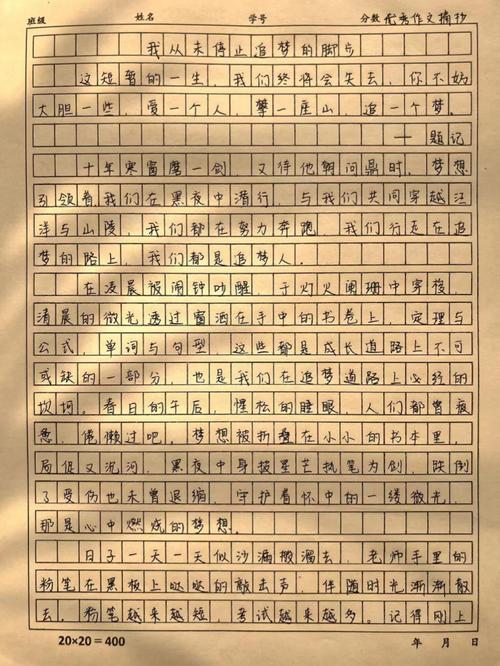 班级 姓名 学号 分数 优秀作文摘抄
我从未停止追梦的脚步
这短暂的一生，我们终将会失去，你不妨
大胆一些，爱一个人，攀一座山，追一个梦。
——题记
十年寒窗磨一剑，又待他朝问鼎时，梦想
引领着我们在黑夜中潜行，与我们共同穿越汪
洋与山陵，我们都在努力奔跑，我们行走在追
梦的路上，我们都是追梦人。
在凌晨被闹钟吵醒，于灯火阑珊中穿梭，
清晨的微光透过窗洒在手中的书卷上，定理与
公式，单词与句型，这些都是成长道路上不可
或缺的一部分，也是我们在追梦道路上必经的
坎坷。春日的午后，惺松的睡眼，人们都曾疲
惫，倦懒过吧。梦想被折叠在小小的书本里，
局促又沉河，黑夜中身披星芒执笔为剑，跌倒
了受伤也未曾退缩，守护着怀中的一缕微光，
那是心中燃烧的梦想。
日子一天一天似沙漏般漏去，老师手里的
粉笔在黑板上哒哒的敲击声，伴随时光渐渐散
去，粉笔越来越短，考试越来越多。记得刚上
20×20=400 年 月 日